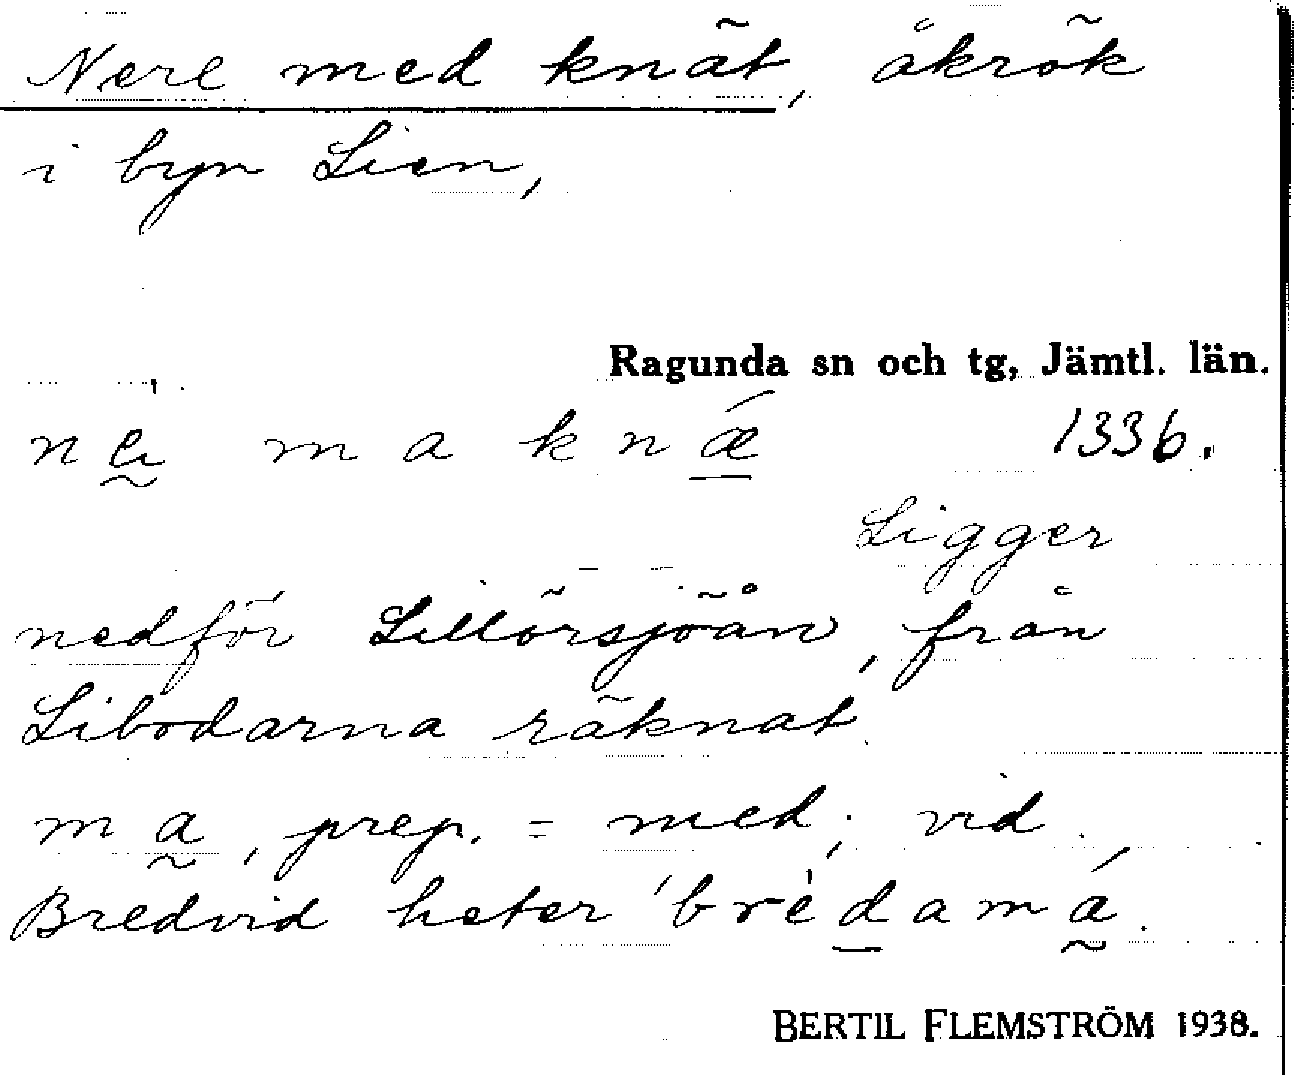 Nere med knät, åkrök
i byn Lien,
Ragunda sn och tg, Jämtl. län.
ma knǽ 1336.
Ligger
nedför Lillörsjöån, från
Libodarna räknat.
ma, prep. = med; vid.
Bredvid heter 'brèdamá.
BERTIL FLEMSTRÖM 1938.